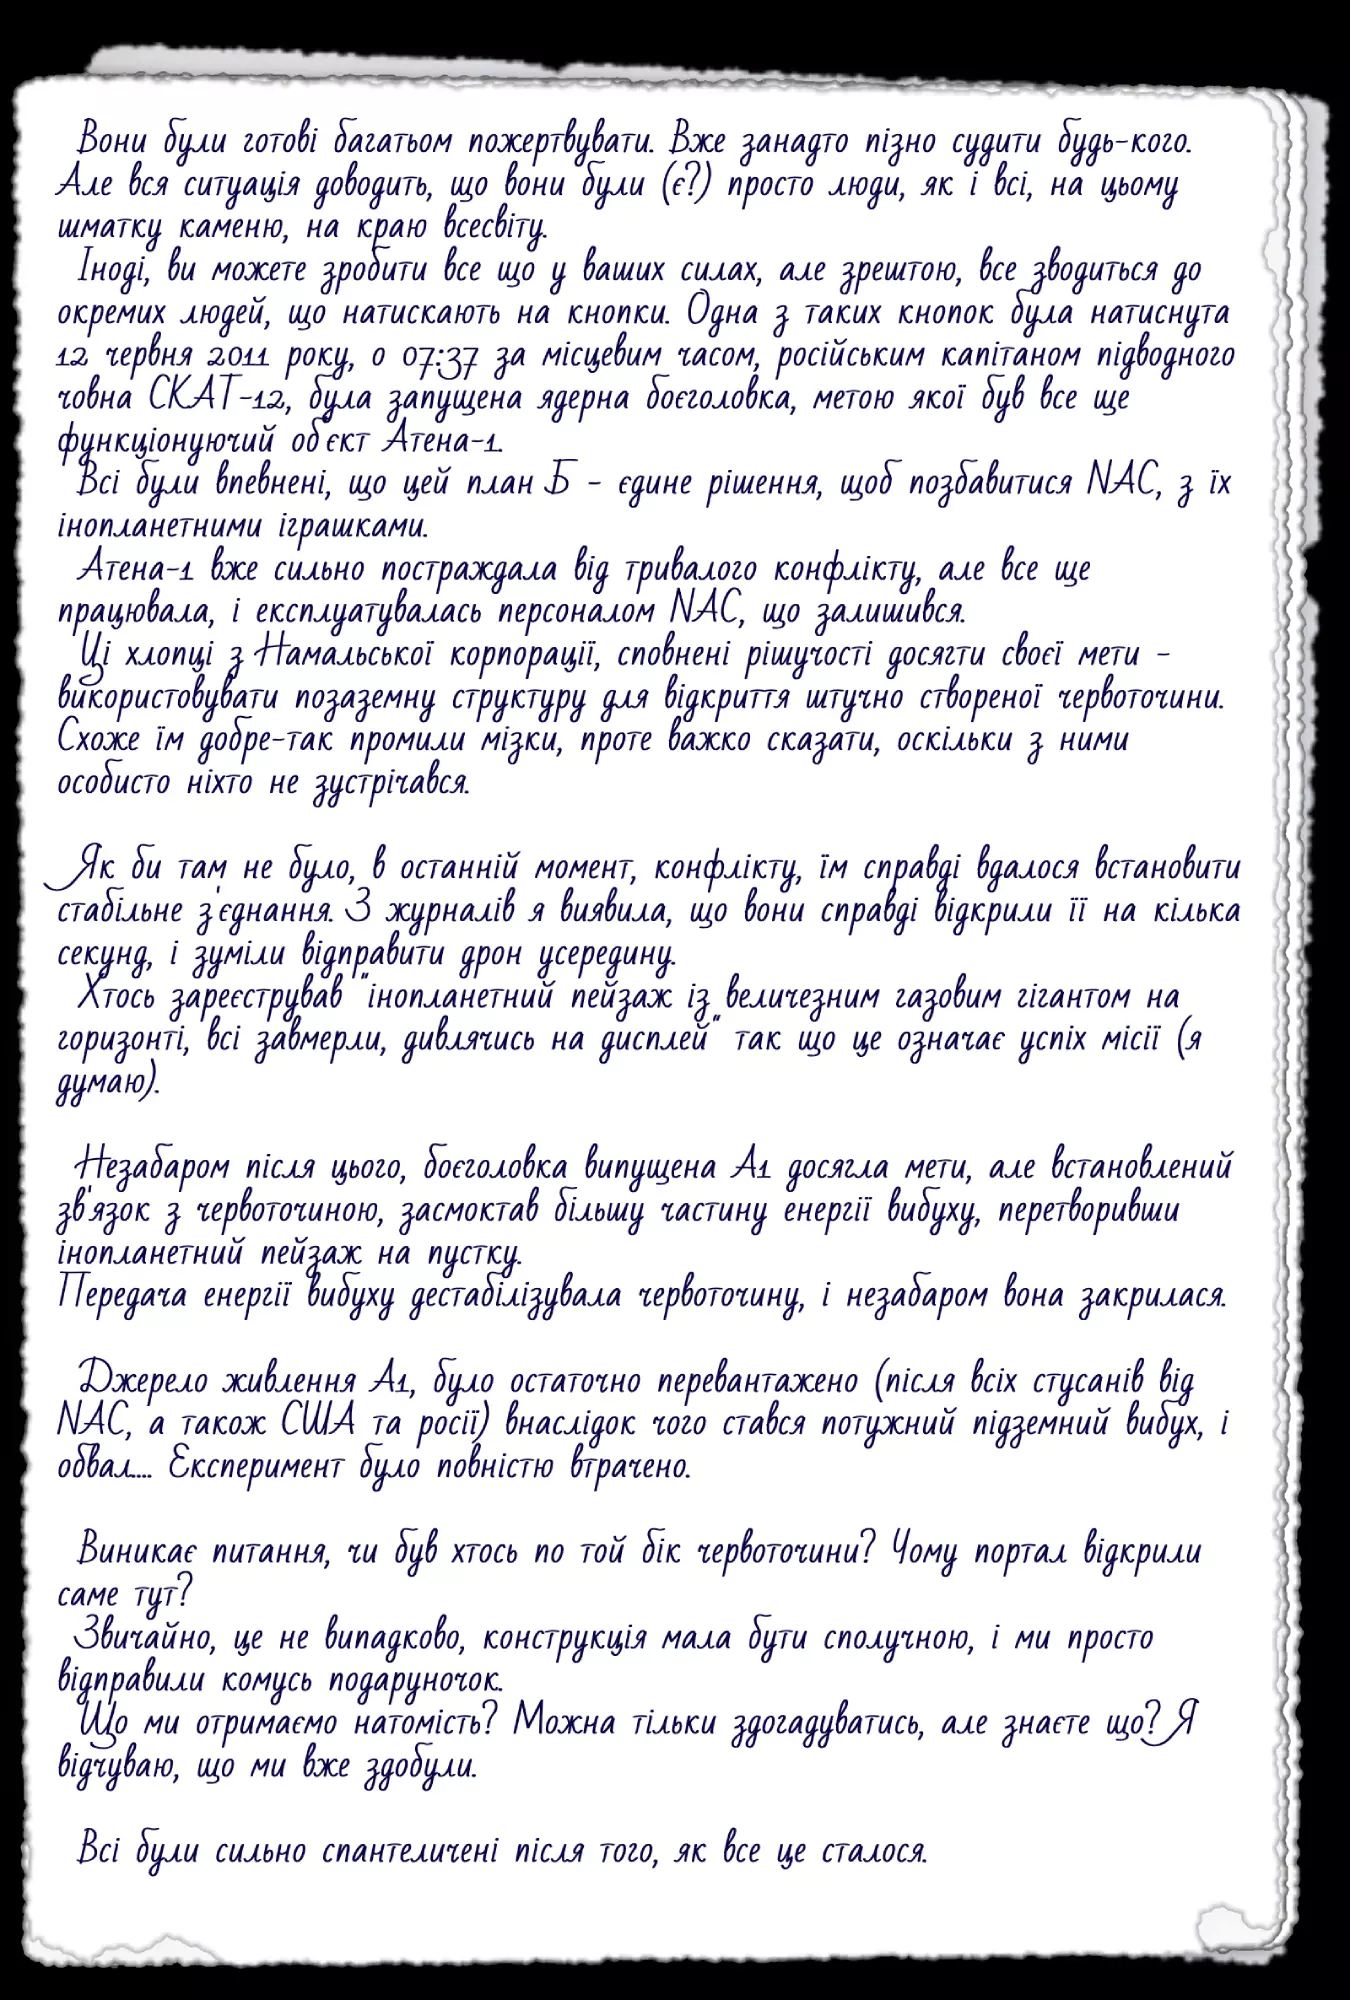 Вони були готові багатьом пожертвувати. Вже занадто пізно судити будь-кого.
Але вся ситуація доводить, що вони були (є?) просто люди, як і всі, на цьому
шматку каменю, на краю всесвіту.
Іноді, ви можете зробити все що у ваших силах, але зрештою, все зводиться до
окремих людей, що натискають на кнопки. Одна з таких кнопок була натиснута
12 червня 2011 року, о 07:37 за місцевим часом, російським капітаном підводного
човна СКАТ-12, була запущена ядерна боєголовка, метою якої був все ще
функціонуючий об'єкт Атена-1.
Всі були впевнені, що цей план Б - єдине рішення, щоб позбавитися NAC, з їх
інопланетними іграшками.
Атена-1 вже сильно постраждала від тривалого конфлікту, але все ще
працювала, і експлуатувалась персоналом NAC, що залишився.
Ці хлопці з Намальської корпорації, сповнені рішучості досягти своєї мети -
використовувати позаземну структуру для відкриття штучно створеної червоточини.
Схоже їм добре-так промили мізки, проте важко сказати, оскільки з ними
особисто ніхто не зустрічався.
Як би там не було, в останній момент, конфлікту, їм справді вдалося встановити
стабільне з'єднання. З журналів я виявила, що вони справді відкрили її на кілька
секунд, і зуміли відправити дрон усередину.
Хтось зареєстрував "інопланетний пейзаж із величезним газовим гігантом на
горизонті, всі завмерли, дивлячись на дисплей" так що це означає успіх місії (я
думаю).
Незабаром після цього, боєголовка випущена А1 досягла мети, але встановлений
зв'язок з червоточиною, засмоктав більшу частину енергії вибуху, перетворивши
інопланетний пейзаж на пустку.
Передача енергії вибуху дестабілізувала червоточину, і незабаром вона закрилася.
Джерело живлення А1, було остаточно перевантажено (після всіх стусанів від
NAC, а також США та росії) внаслідок чого стався потужний підземний вибух, і
обвал.... Експеримент було повністю втрачено.
Виникає питання, чи був хтось по той бік червоточини? Чому портал відкрили
саме тут?
Звичайно, це не випадково, конструкція мала бути сполучною, і ми просто
відправили комусь подаруночок.
Що ми отримаємо натомість? Можна тільки здогадуватись, але знаєте що? Я
відчуваю, що ми вже здобули.
Всі були сильно спантеличені після того, як все це сталося.